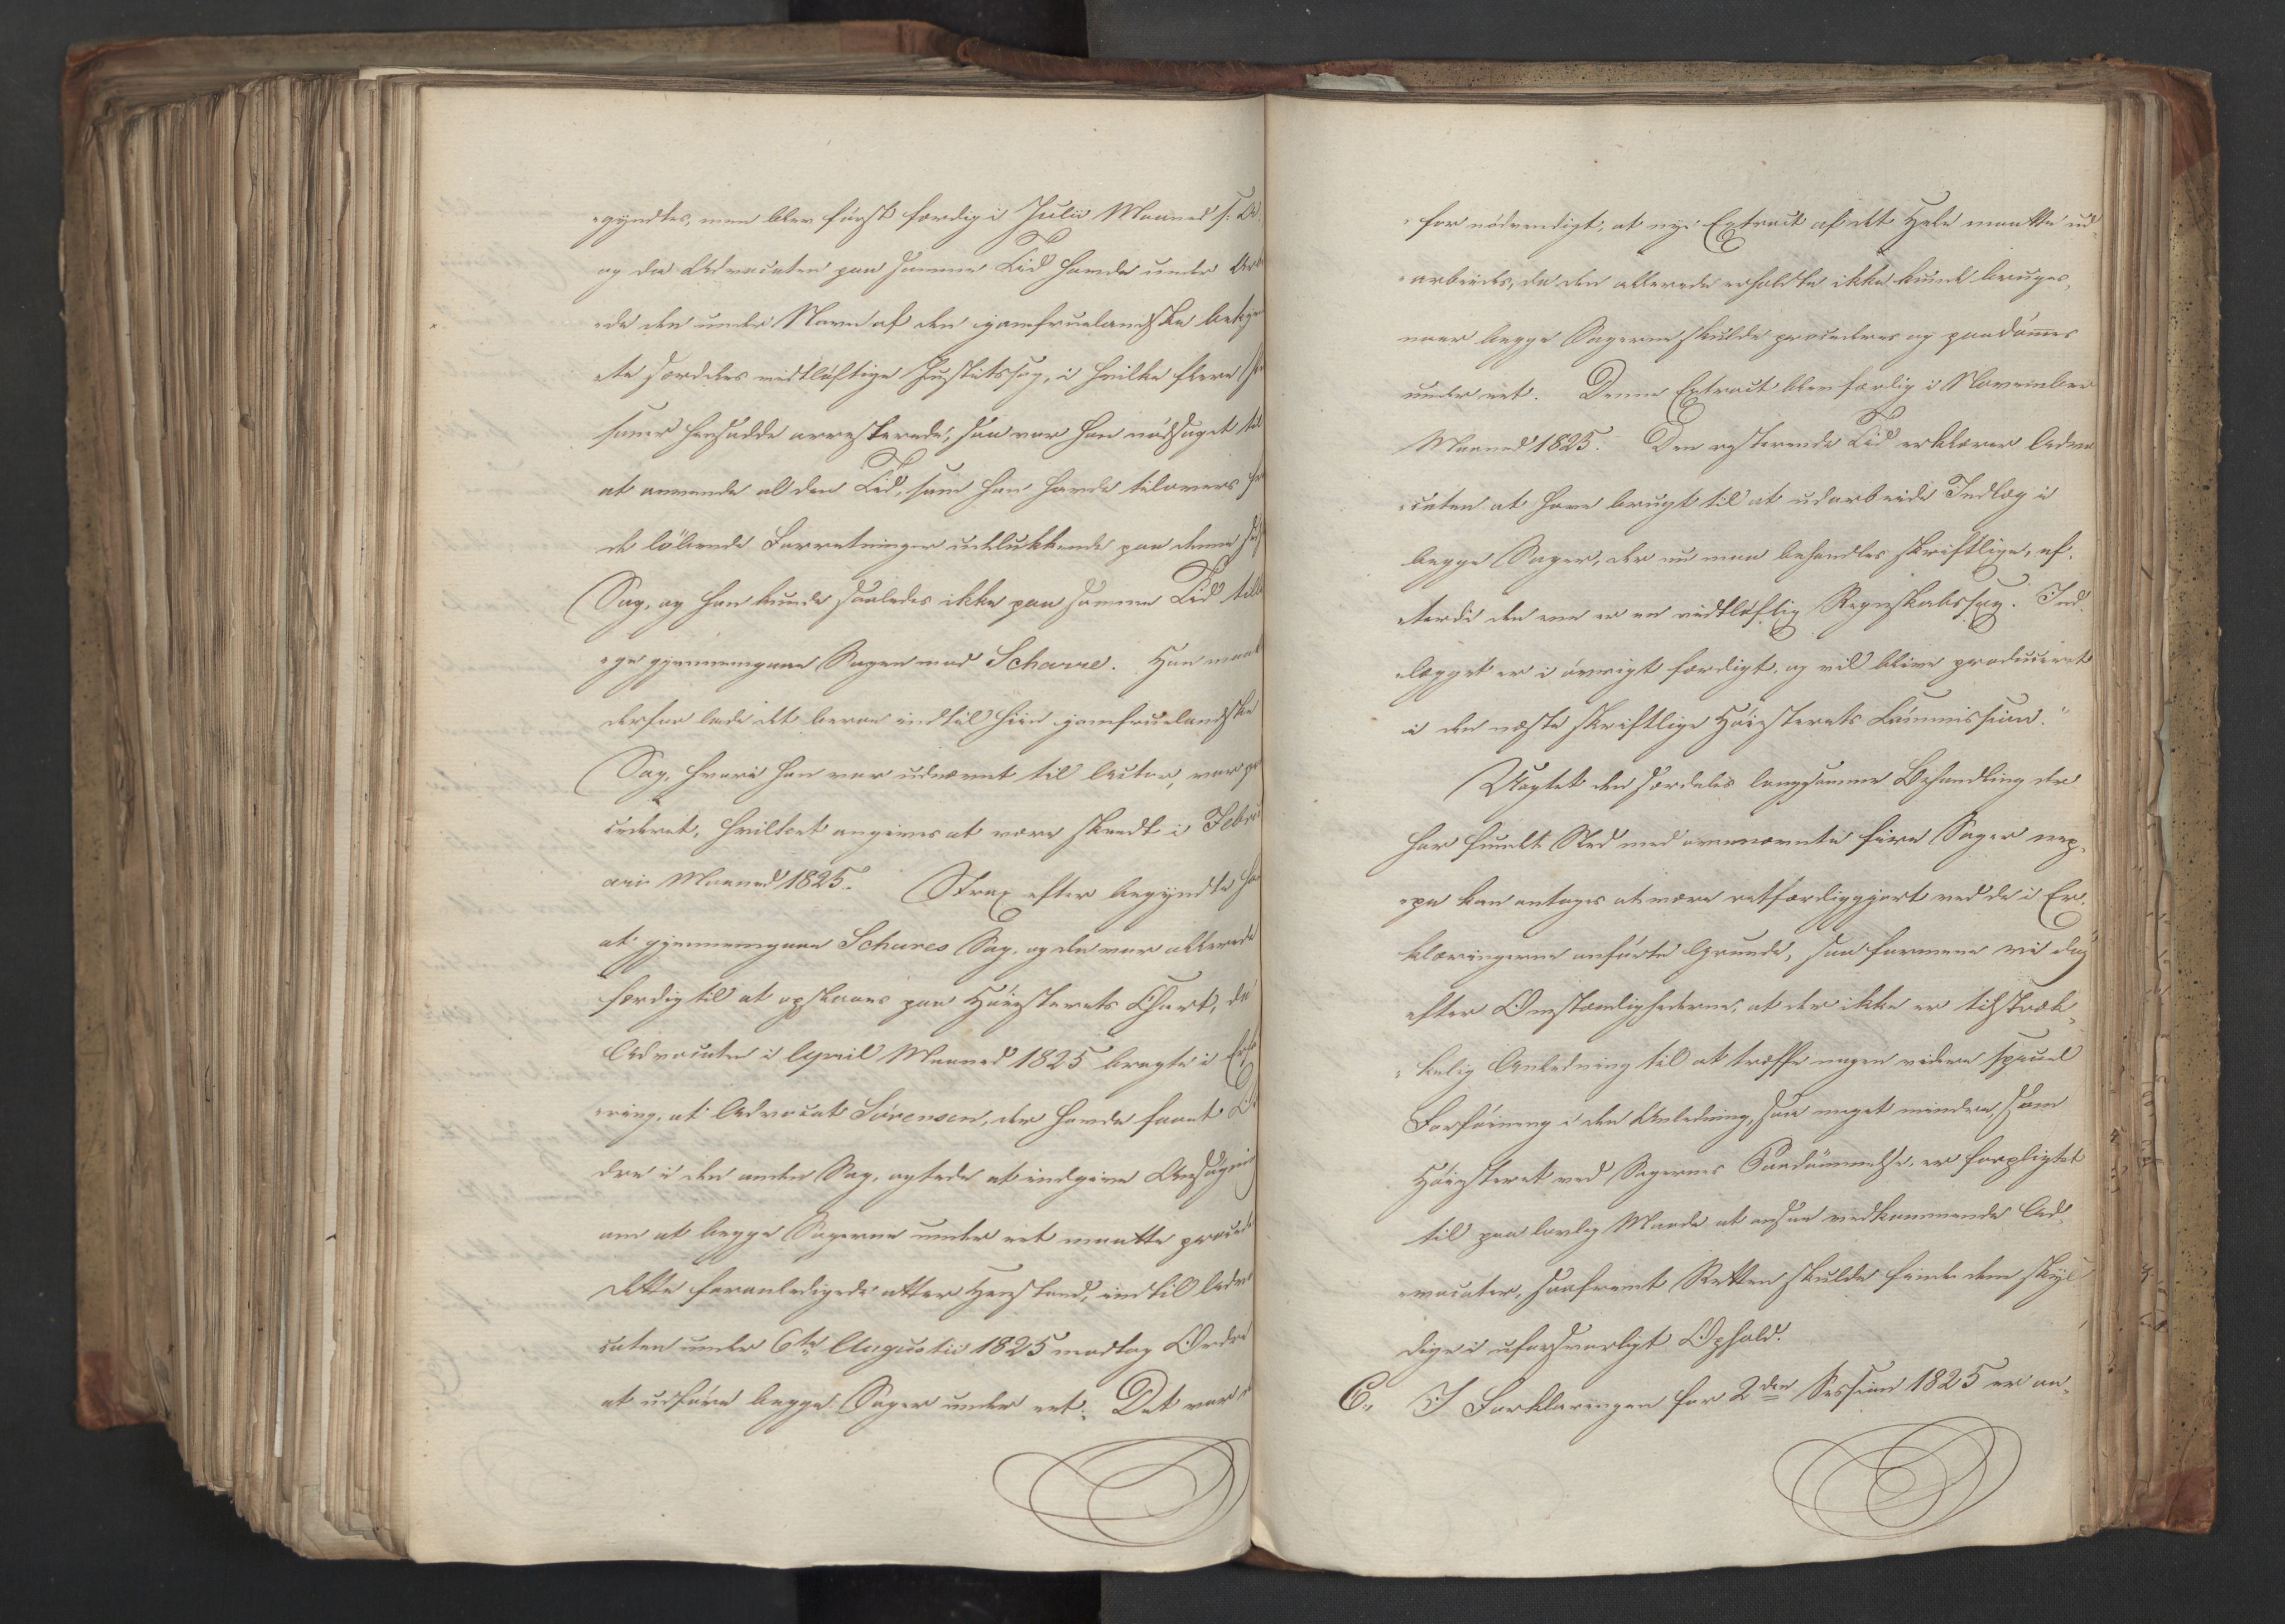 -gyndtes, men blev først færdig i Julii Maaned s. A.
og da Advocaten paa samme Tid havde under Arb
-de den under Navn af den jomfruelandske bekje
-te særdeles vidtløftige Justitssag, i hvilken flere
soner hensadde arresterede, saa var han nødsaget til
at anvende al den Tid, som han havde tilovers fr
de løbende Forretninger udelukkende paa denne
Sag, og han kunde saaledes ikke paa samme Tid till
-ge gjennemgaae Sagen mod Scharre. Han maat
derfor lade det beroe indtil hiin jomfruelandske
Sag, hvori han var udnævnt til Actor, var pr
cederet, hvilket angives at være skeedt i Febru
arii Maaned 1825. Strax efter begyndte ha
at gjennemgaae Schares Sag, og den var allerede
færdig til at opslaaes paa Høiesterets Chart, da
Advocaten i April Maaned 1825 bragte i Erfa
-ring, at Advocat Sörensen, der havde faaet Or
dre i den anden Sag, agtede at indgive Ansøgning
om at begge Sagerne under eet maatte procede
Dette foranledigede atter Henstand, indtil Advo
caten under 6te Augustii 1825 modtog Ordre
at udføre begge Sager under eet. Det var
for nødvendigt, at nye Extract af det Hele maatte ud-
-arbeides, da den allerede erholdte ikke kunde bruges,
naar begge Sagerne skulde procederes og paadømmes
under eet. Denne Extract blev færdig i November
Maaned 1825. Den resterende Tid erklærer Advo
-caten at have brugt til at udarbeide Indlæg i
begge Sager, der nu maa behandles skriftligen, ef-
-terdi den ene er en vidtløftig Regnskabssag. Ind-
-lægget er i øvrigt færdigt, og vil blive produceret
i den næste skriftlige Høiesterets Commission."
Uagtet den særdeles langsomme Behandling der
har fundet Sted med ovennævnte fire Sager nep-
-pe kan antages at være retfærdiggjort ved de i Er-
klæringerne anførte Grunde, saa formene vi dog
efter Omstændighederne, at der ikke er tilstræk-
-kelig Anledning til at træffe nogen videre speciel
Forføining i den Anledning, saa meget mindre, som
Høiesteret ved Sagernes Paadømmelse, er forpligtet
til paa lovlig Maade at ansee vedkommende Ad-
-vocater, saafremt Retten skulde finde dem skyl
dige i uforsvarligt Ophold.
C., I Forklaringen for 2den Session 1825 er an-